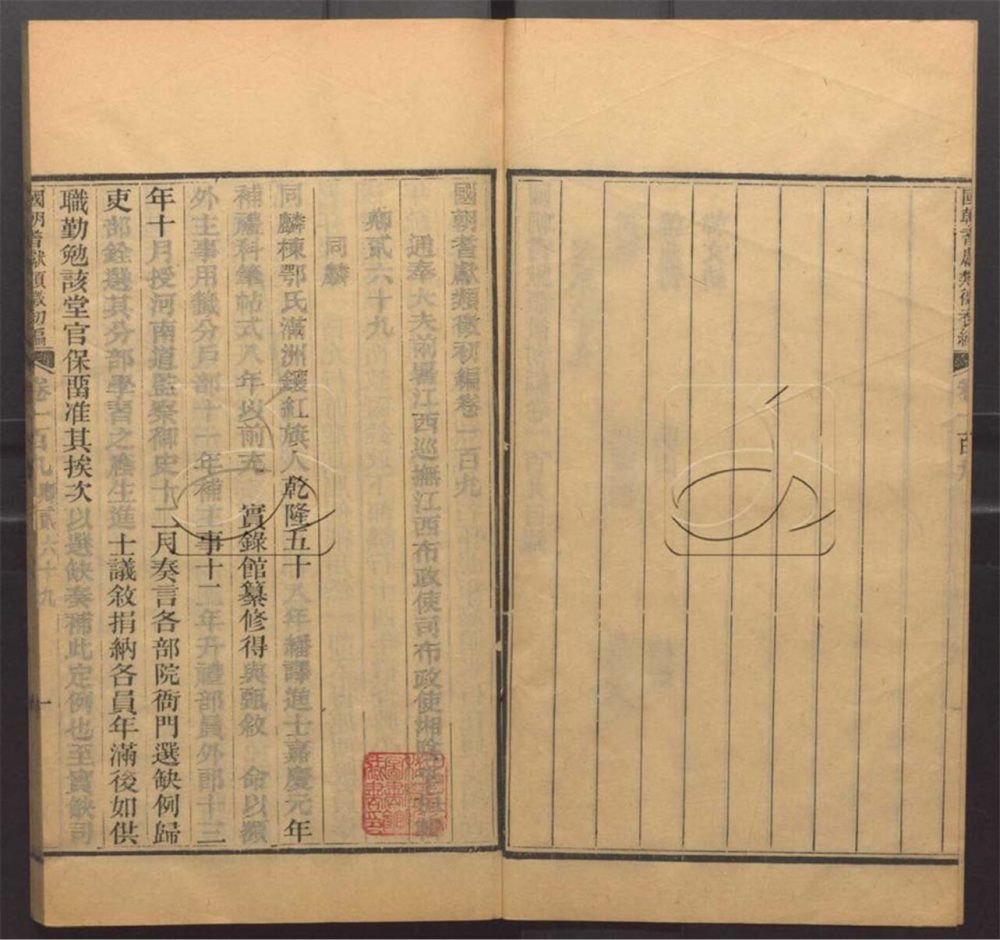 國朝耆獻類徵初編卷一百九
通奉大夫前署江西巡撫江西布政使司布政使湘陰李桓輯
卿貳六十九
同麟
同麟棟鄂氏滿洲鑲紅旗人乾隆五十八年繙譯進士嘉慶元年
補禮科筆帖式八年以前充 實錄館纂修得與甄敘 命以額
外主事用籤分戶部十一年補主事十二年升禮部員外郎十三
年十月授河南道監察御史十二月奏言各部院衙門選缺例歸
吏部銓選其分部學習之廕生進士議敘捐納各員年滿後如供
職勤勉該堂官保畱准其挨次以選缺奏補此定例也至實缺司
國朝耆獻類徵初編 卷一百九 卿貳六十九 一